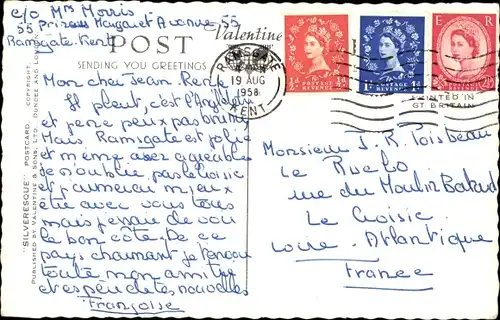 c/o Mrs Morris
55 Princess Margaret Avenue 55
Ramsgate Kent
POST
Valentine
SENDING YOU GREETINGS
RAMSGATE
19 AUG
1958
KENT
POSTAGE REVENUE
E R
PRINTED IN
GT BRITAIN
"SILVERESQUE" POSTCARD. COPYRIGHT.
PUBLISHED BY VALENTINE & SONS, LTD., DUNDEE AND
Mon cher Jean René
Il pleut, c'est l'Angleterre
et je ne peux pas bruni
Mais Ramsgate est jolie
et même assez agréable
Je n'oublie pas le Croisic
et j'aimerai mieux
été avec vous tous
mais je vais de voir
le bon côté. De ce
pays charmant je t'envoie
toute mon amitié
et espère de tes nouvelles
Françoise
Monsieur J. R. Poisbeau
Le
rue du Moulin
Le Croisic
Loire Atlantique
France